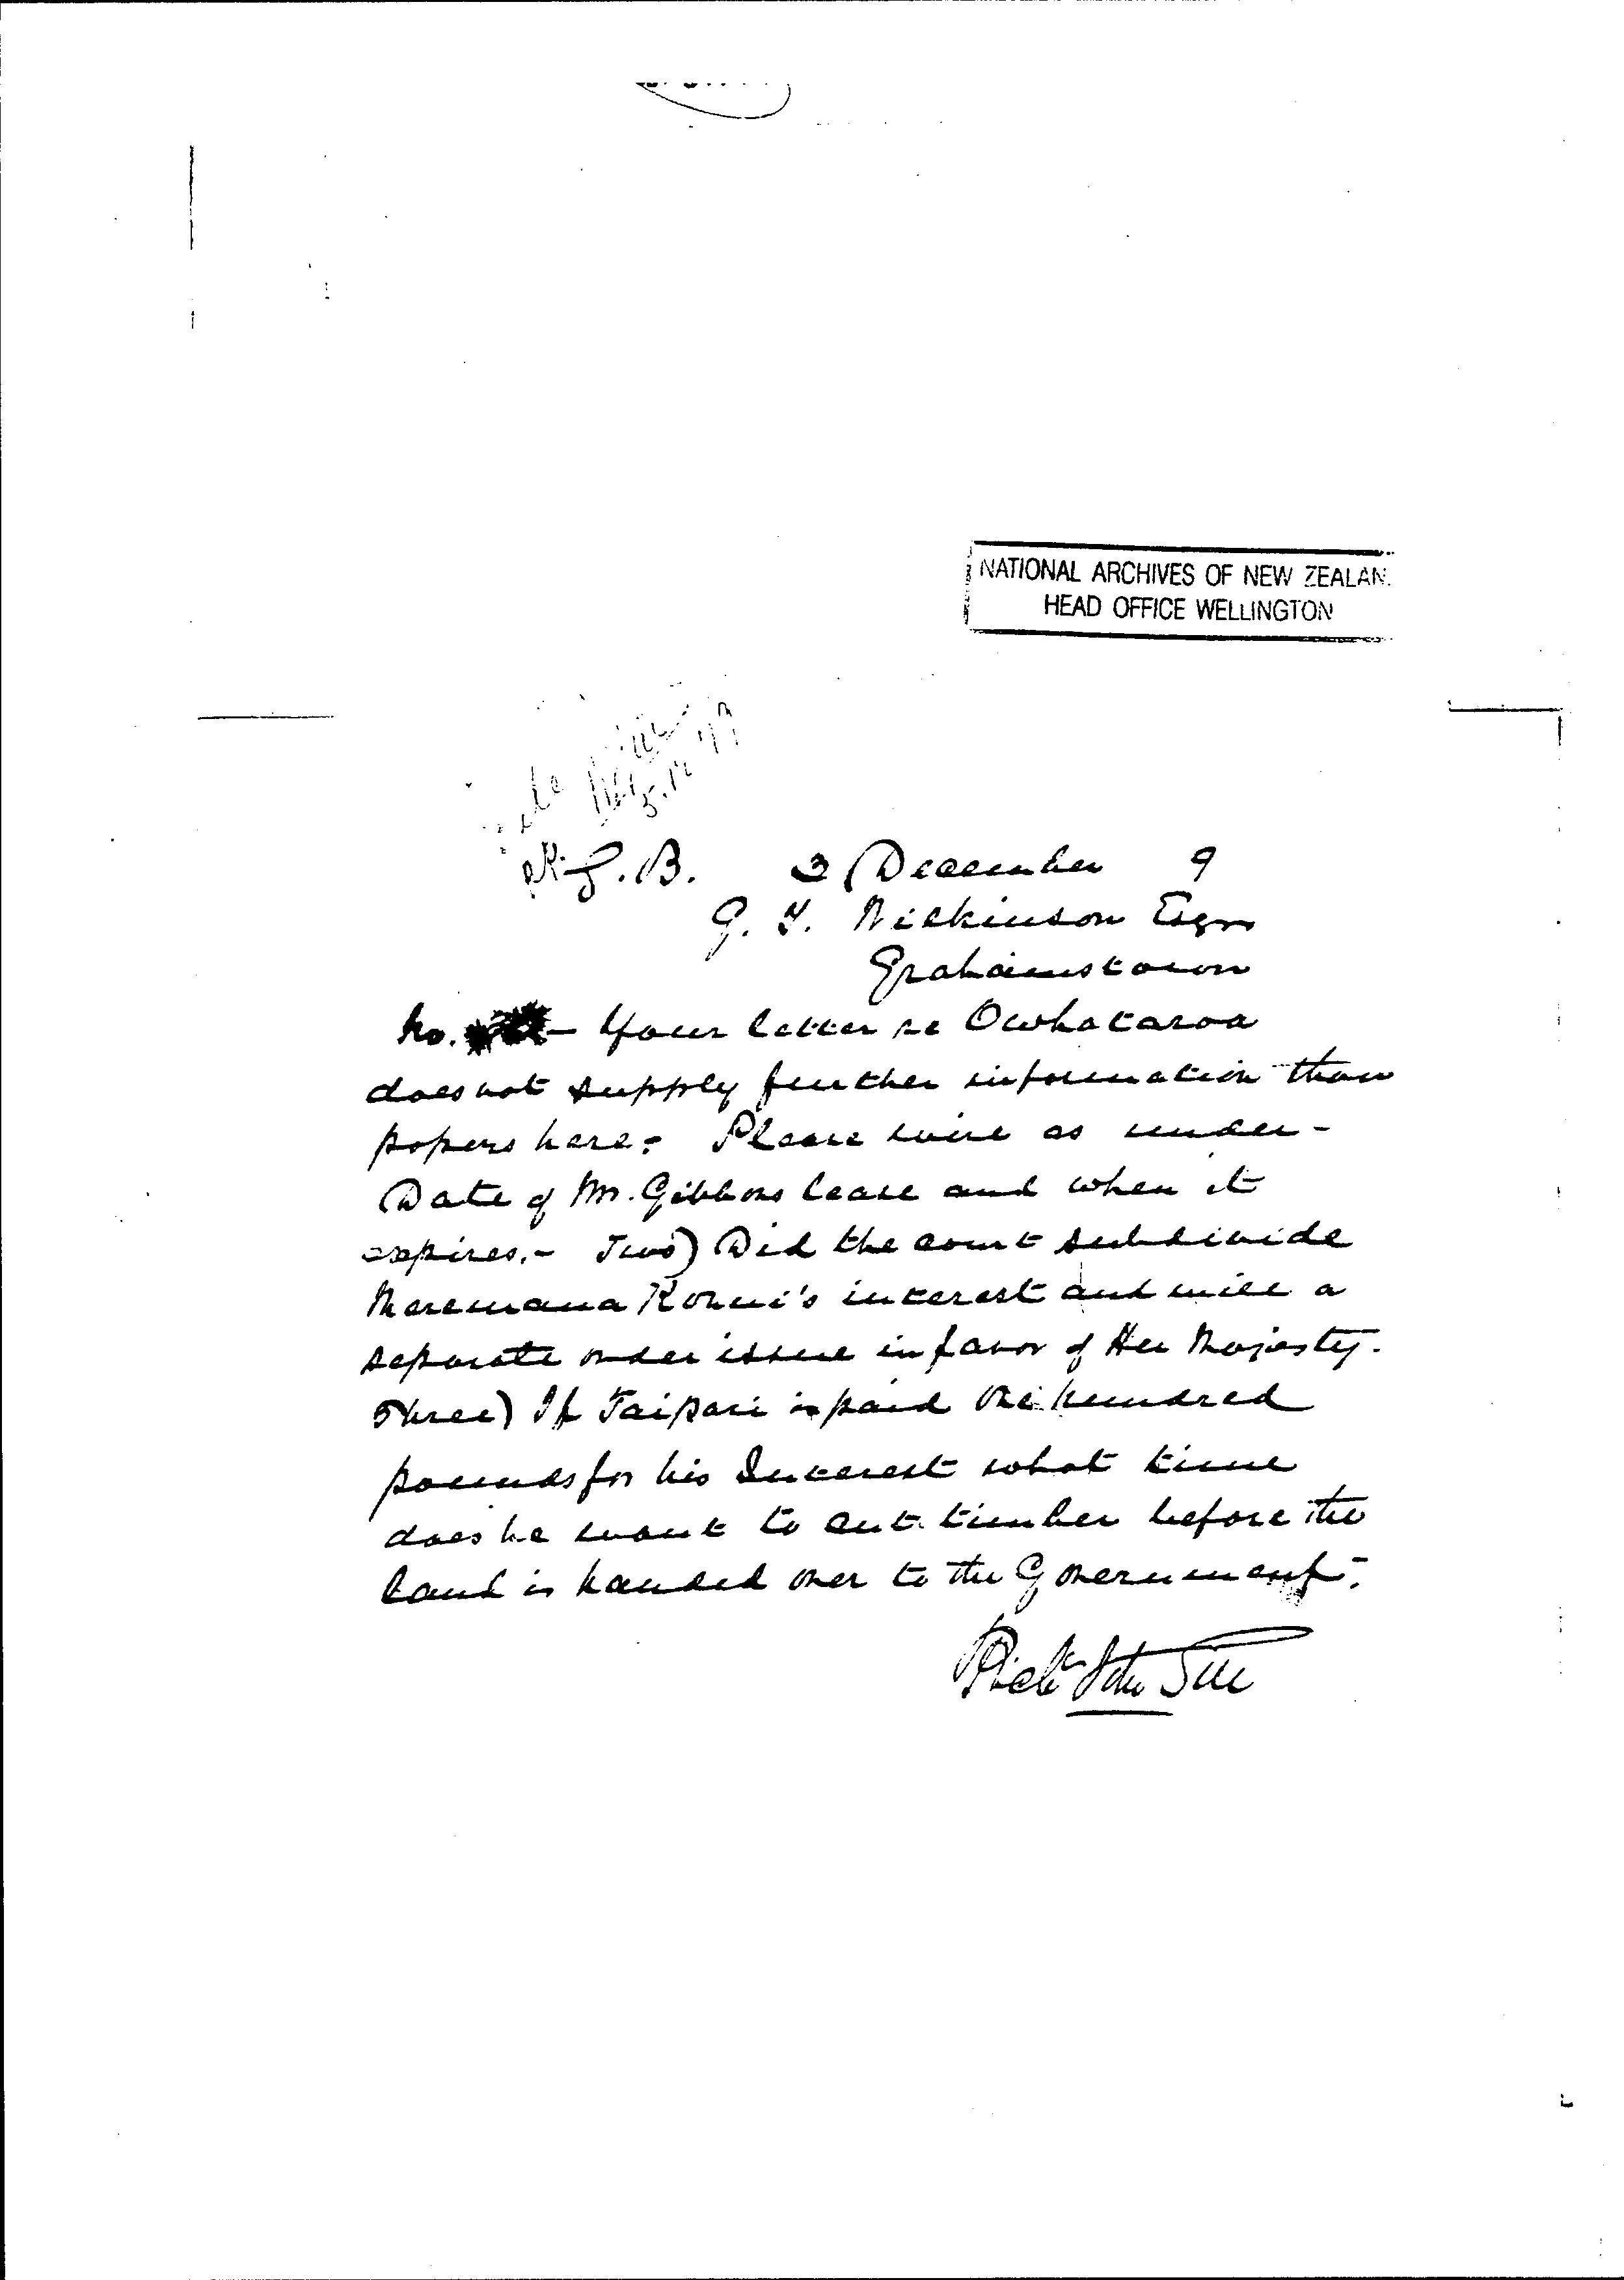 NATIONAL ARCHIVES OF NEW ZEALAN
HEAD OFFICE WELLINGTON
B. 3 December 9
G. T. Wilkinson Esqr
Grahamstown
No. – Your letter re Owhataroa
does not supply further information than
papers here. Please wire as under –
Date of Mr. Gibbons lease and when it
expires. – Two) Did the court subdivide
Meremana Konui's interest and will a
separate order issue in favor of Her Majesty.
Three) If Taipari is paid one hundred
pounds for his Interest what time
does he want to cut timber before the
land is handed over to the Government.
Richd Jno Gill